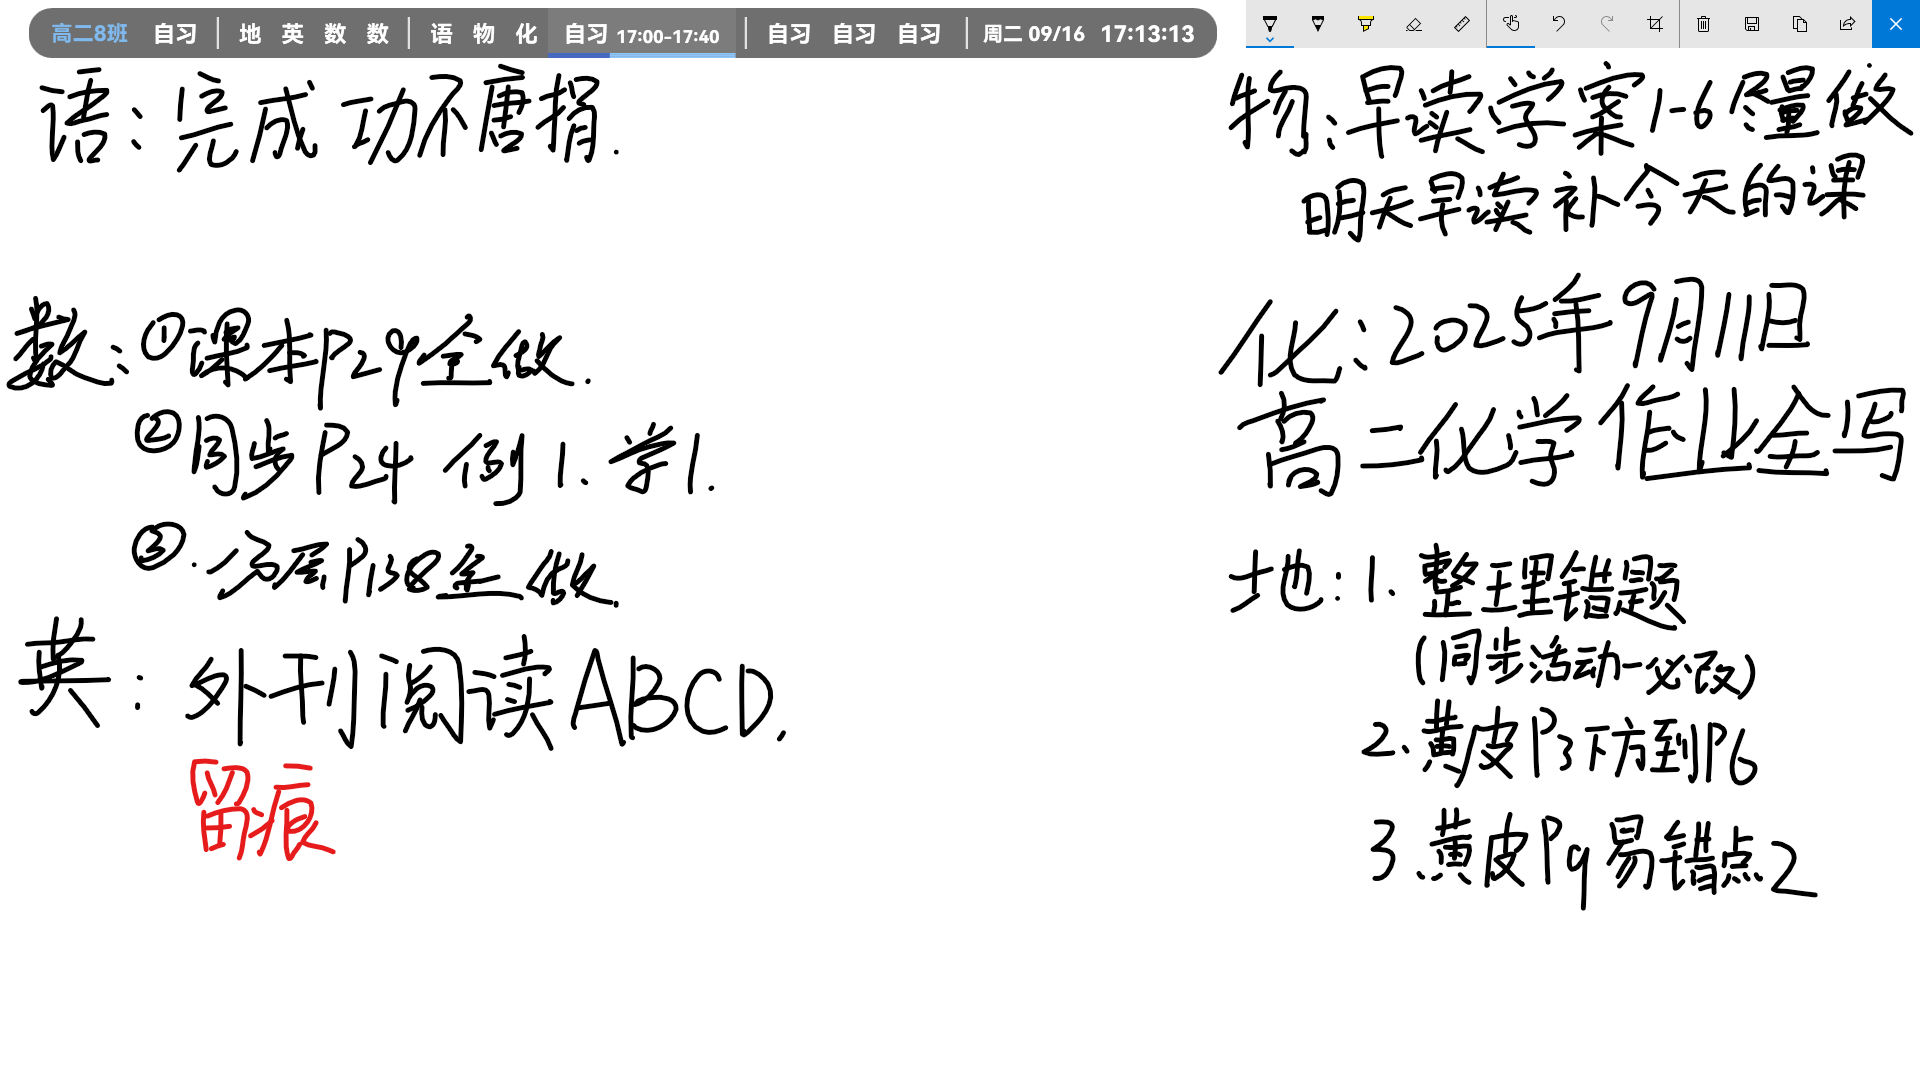 高二8班 自习 | 地 英 数 数 | 语 物 化 自习 17:00-17:40 | 自习 自习 自习 | 周二 09/16 17:13:13
语:完成功不唐捐.
数:①课本P29全做.
②同步P24 例1、学1.
③.分层P138全做.
英:外刊阅读ABCD.
留痕
物:早读学案1-6尽量做
明天早读补今天的课
化:2025年9月11日
高二化学作业全写
地:1.整理错题
(同步活动一必改)
2.黄皮P3下方到P6
3.黄皮P9易错点2